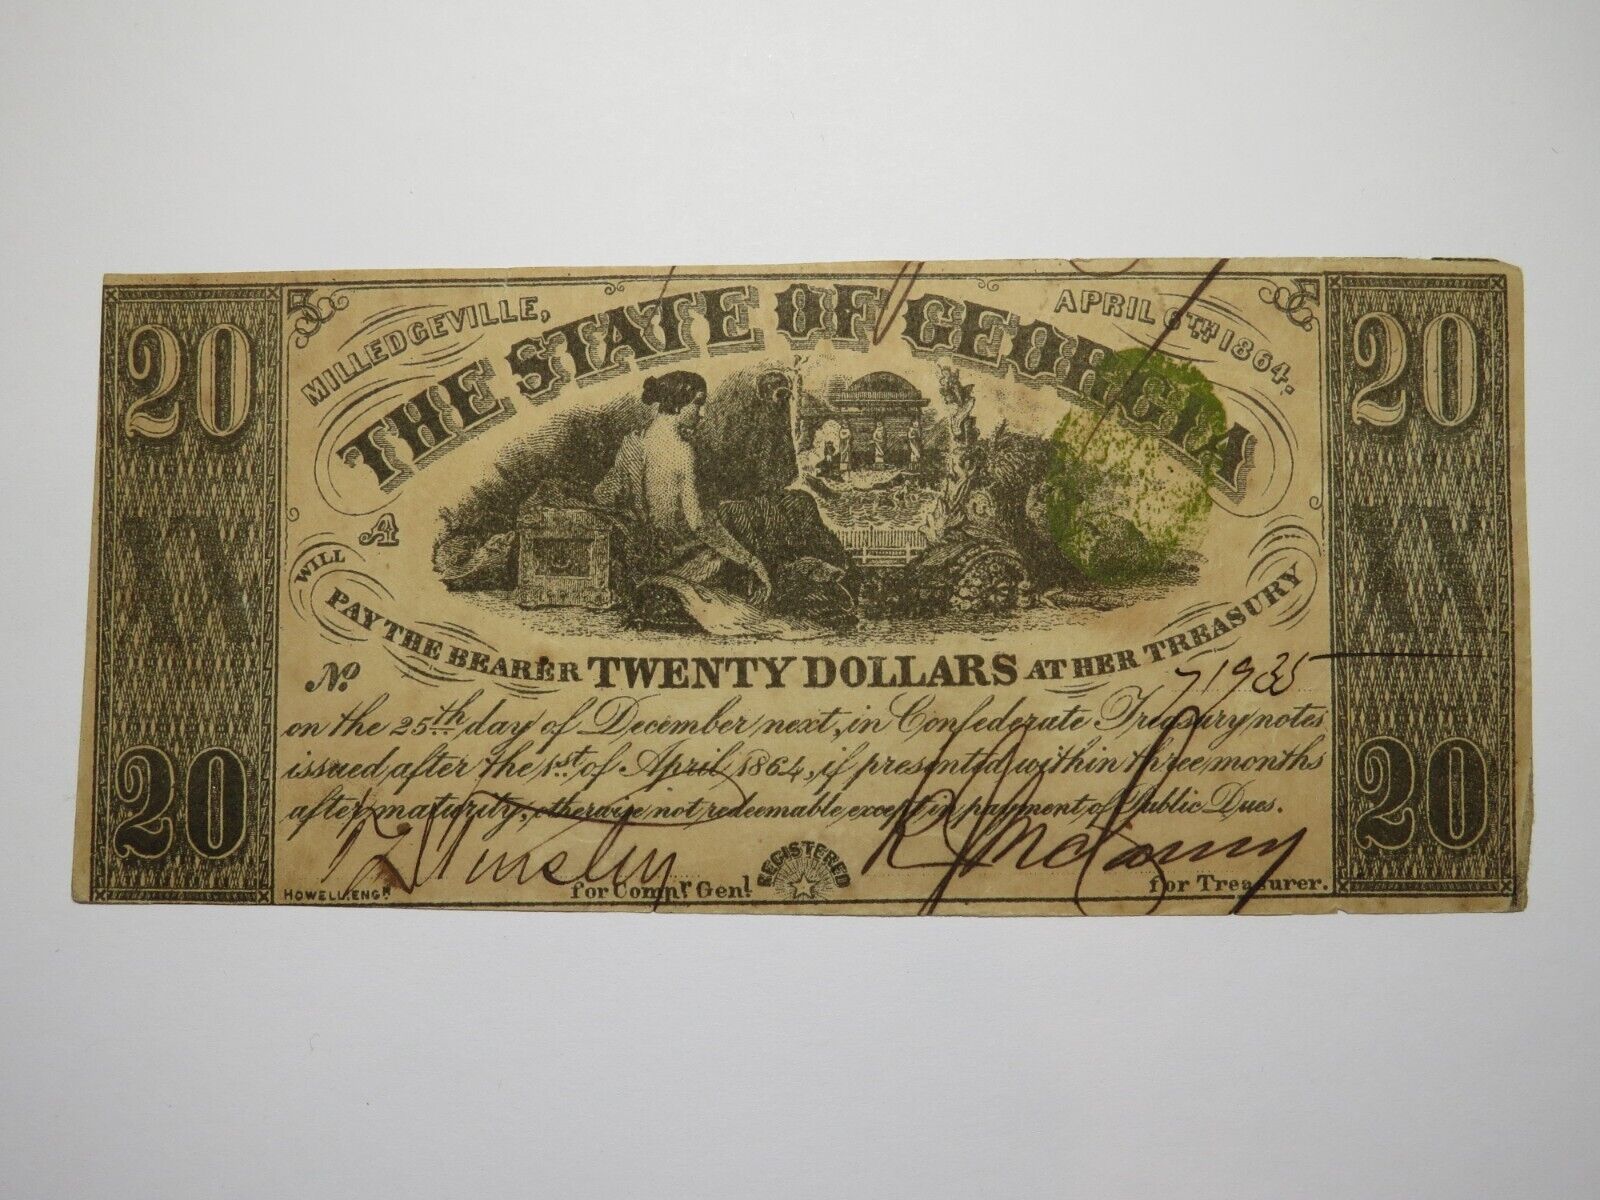 20
20
MILLEDGEVILLE,
APRIL 6TH 1864.
THE STATE OF GEORGIA
XX
A
XX
WILL
PAY THE BEARER TWENTY DOLLARS AT HER TREASURY
No. 71935
on the 25th day of December next, in Confederate Treasury notes
issued after the 1st of April 1864, if presented within three months
after maturity, otherwise not redeemable except in payment of Public Dues.
20
20
HOWELL. ENGR.
for Compr. Genl.
REGISTERED
for Treasurer.